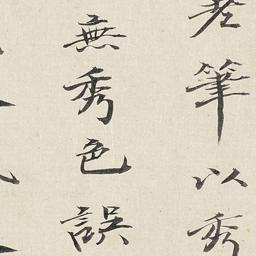 筆以秀
無秀色誤